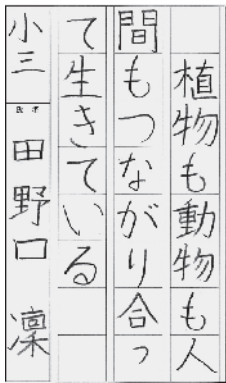 植物も動物も人
間もつながり合っ
て生きている
小三 氏名 田野口 凜